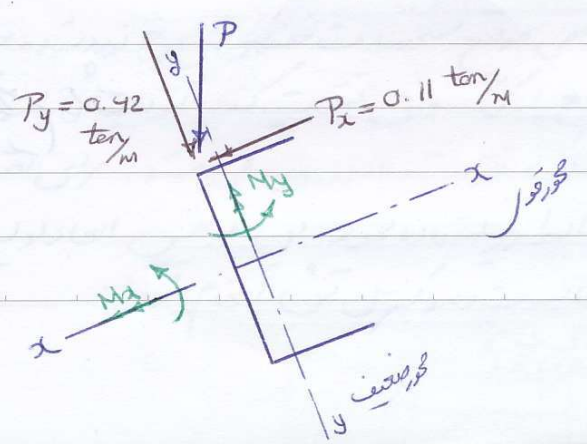 P
y
Py = 0.42
ton/m
Px = 0.11 ton/m
My
x
محور قوی
Mx
x
محور ضعیف
y